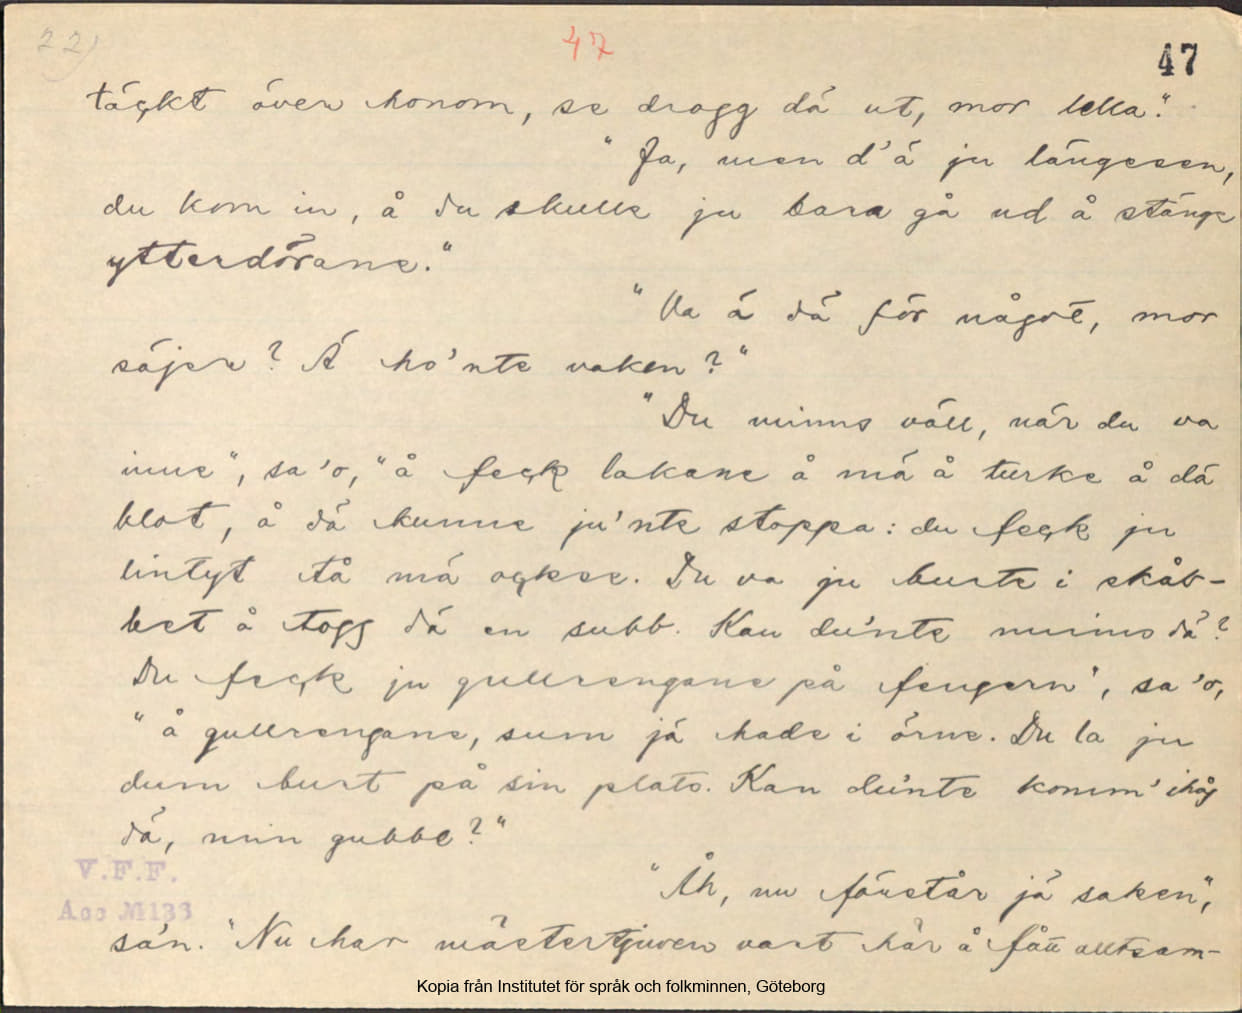 22)
47
47
täckt över honom, se drogg dä ut, mor lella."
"Ja, men d'ä ju längesen,
du kom in, å du skulle ju bara gå ud å stänge
ytterdörane."
"Va ä dä för någet, mor
säjer? Ä ho'nte vaken?"
"Du minns väll, när du va
inne", sa'o, "å feck lakane å mä å turke å dä
blot, å dä kunne ju'nte stoppa: du feck ju
lintyt tå mä ockse. Du va ju burte i skåb-
bet å togg dä en subb. Kan du'nte minns dä?
Du feck ju gullrengane på fengern', sa'o,
"å gullrengane, sum jä hade i örne. Du la ju
dum burt på sin plats. Kan du'nte komm' ihåg
dä, min gubbe?"
"Åh, nu förstår jä saken",
sa'n. "Nu har mästertjuven vart här å fått alltsam-
V.F.F.
Acc M133
Kopia från Institutet för språk och folkminnen, Göteborg